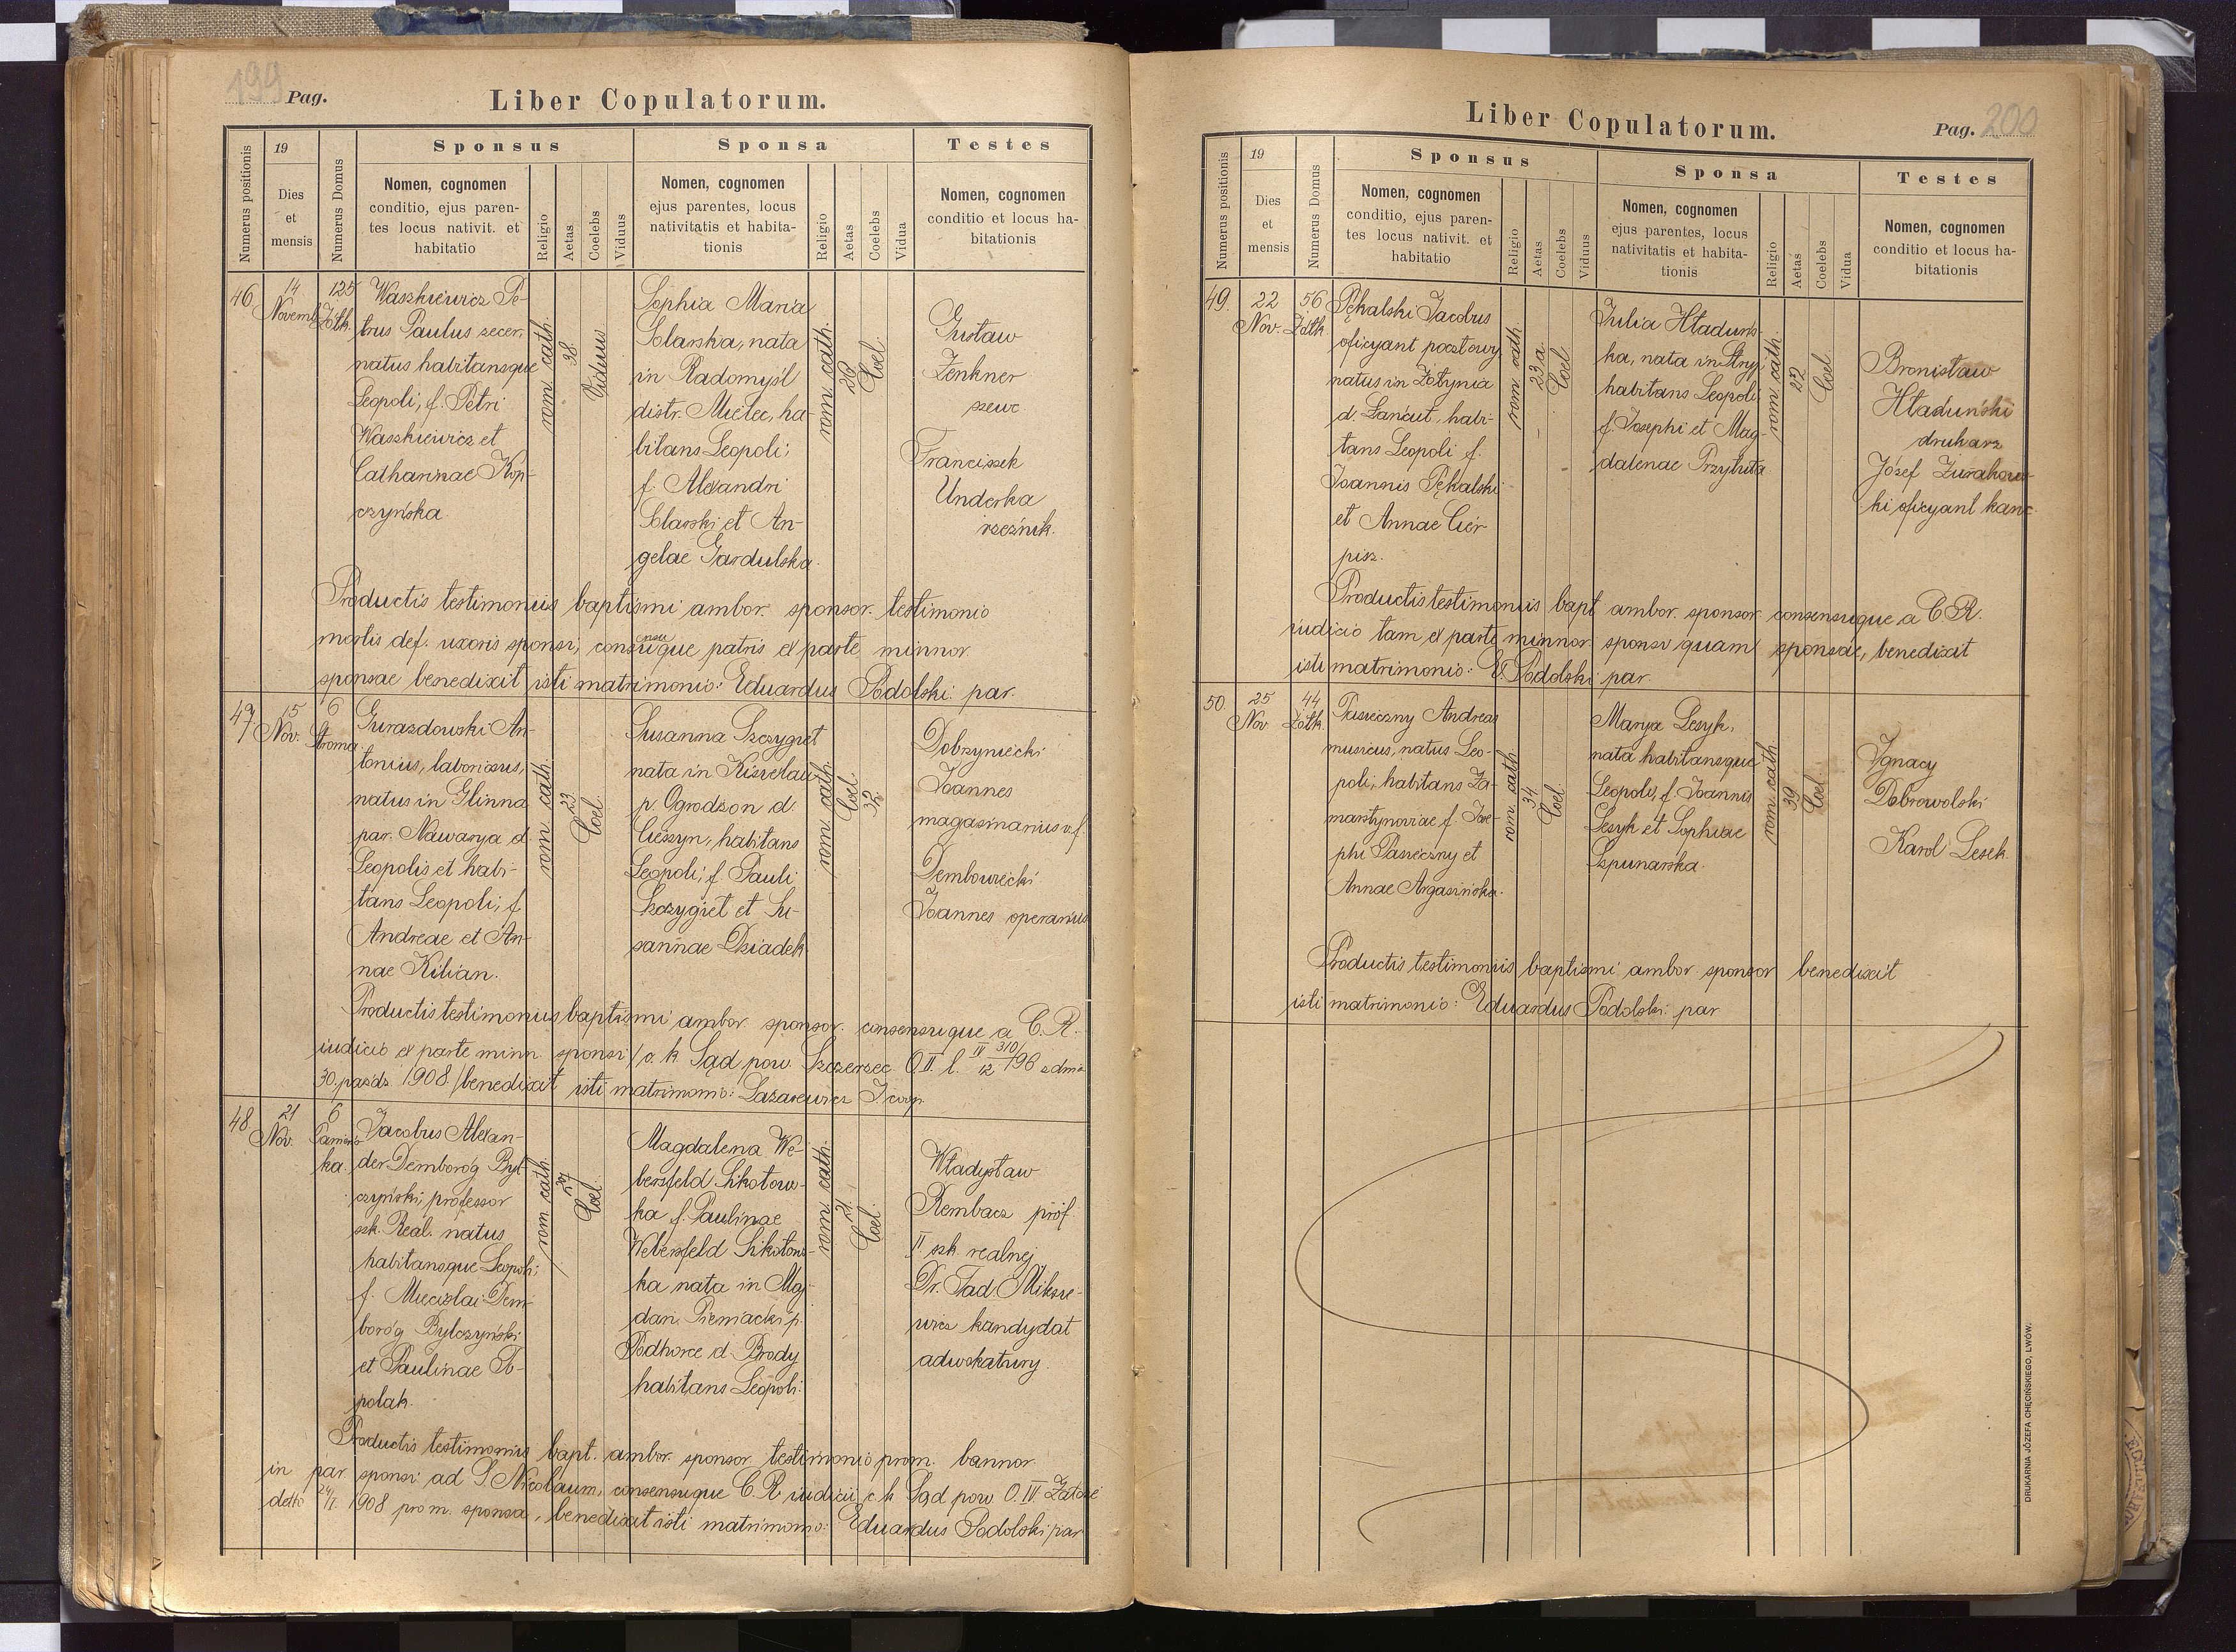 199 Pag.
Liber Copulatorum.
Numerus positionis
19
Dies
et
mensis
Numerus Domus
Sponsus
Nomen, cognomen
conditio, ejus paren-
tes locus nativit. et
habitatio
Religio
Aetas
Coelebs
Viduus
Sponsa
Nomen, cognomen
ejus parentes, locus
nativitatis et habita-
tionis
Religio
Aetas
Coelebs
Vidua
Testes
Nomen, cognomen
conditio et locus ha-
bitationis
46.
14
Novemb.
125
Żółk.
Waszkiewicz Pe-
trus Paulus zecer,
natus habitansque
Leopoli, f. Petri
Waszkiewicz et
Catharinae Kop-
czyńska
rom. cath.
38
Viduus
Sophia Maria
Sclarska, nata
in Radomyśl
distr. Mielec, ha-
bitans Leopoli;
f. Alexandri
Sclarski et An-
gelae Gardulska.
rom. cath.
26
Coel.
Gustaw
Zenkner
szewc
Franciszek
Underka
rzeźnik.
Productis testimoniis baptismi ambor. sponsor. testimonio
mortis def. uxoris sponsi, consensuque patris ex parte minnor.
sponsae benedixit isti matrimonio: Eduardus Podolski par.
47.
15
Nov.
6
Stroma
Gurazdowski An-
tonius, laboriosus,
natus in Glinna
par. Nawarya d.
Leopolis et habi-
tans Leopoli; f.
Andreae et An-
nae Kilian.
rom. cath.
23
Coel.
Susanna Szczygieł
nata in Kisielau
p. Ogrodzon d.
Cieszyn, habitans
Leopoli; f. Pauli
Szczygieł et Su-
sannae Dziadek
rom. cath.
Coel
32
Dobrzyniecki
Joannes
magasinarius v. f.
Dembowiecki
Joannes operarius
Productis testimoniis baptismi ambor. sponsor. consensuque a C. R.
iudicio ex parte minn. sponsi /c. k. Sąd pow. Szczerzec O. II. l. IV 310/12 /96 z dnia
30. paźdz. 1908/ benedixit isti matrimonio: Łazarewicz J. coop.
48.
21
Nov.
6
Jacobus Alexan-
der Demboróg Byl-
czyński, professor
szk. Real. natus
habitansque Leopoli;
f. Miecislai Dem-
boróg Bylczyński
et Paulinae To-
polak.
rom. cath.
Coel.
Magdalena We-
bersfeld Sikotow-
ka f. Paulinae
Webersfeld Sikotow-
ka nata in Maj-
dan Pieniacki p.
Podhorce d. Brody
habitans Leopoli.
rom. cath.
21
Coel.
Władysław
Rembacz prof.
II szk realnej
Dr. Tad. Miksie-
wicz kandydat
adwokatury.
Productis testimoniis bapt. ambor. sponsor. testimonio prom. bannor.
in par. sponsi ad S. Nicolaum, consensuque C. R. iudicii c. k Sąd pow O. IV
1908 pro m. sponsa, benedixit isti matrimonio: Eduardus Podolski par
Liber Copulatorum.
Pag. 200
Numerus positionis
19
Dies
et
mensis
Numerus Domus
Sponsus
Nomen, cognomen
conditio, ejus paren-
tes locus nativit. et
habitatio
Religio
Aetas
Coelebs
Viduus
Sponsa
Nomen, cognomen
ejus parentes, locus
nativitatis et habita-
tionis
Religio
Aetas
Coelebs
Vidua
Testes
Nomen, cognomen
conditio et locus ha-
bitationis
49.
22
Nov.
56
Żółk.
Pękalski Jacobus
oficyant pocztowy
natus in Żołynia
d. Łańcut, habi-
tans Leopoli f.
Joannis Pękalski
et Annae Cier-
pisz.
rom. cath
23 a.
Coel.
Julia Hładuńs-
ka, nata in Stryj
habitans Leopoli
f. Josephi et Mag-
dalenae Przytuła
rom. cath.
22
Coel.
Bronisław
Hładuński
drukarz
Józef Żurakows-
ki oficyant kanc
Productis testimoniis bapt ambor. sponsor. consensuque a C. R.
iudicio tam ex parte minnor. sponsi quam sponsae, benedixit
isti matrimonio: E. Podolski par
50.
25
Nov.
44
Żółk.
Pasieczny Andreas
musicus, natus Leo-
poli, habitans Za-
marstynoviae f. Jose-
phi Pasieczny et
Annae Argasińska.
rom. cath.
34
Coel
Marya Lesyk,
nata habitansque
Leopoli, f. Joannis
Lesyk et Sophiae
Szpunarska.
rom. cath.
39
Coel.
Ignacy
Dobrowolski
Karol Lesek.
Productis testimoniis baptismi ambor sponsor benedixit
isti matrimonio: Eduardus Podolski par
DRUKARNIA JÓZEFA CHĘCIŃSKIEGO, LWÓW.